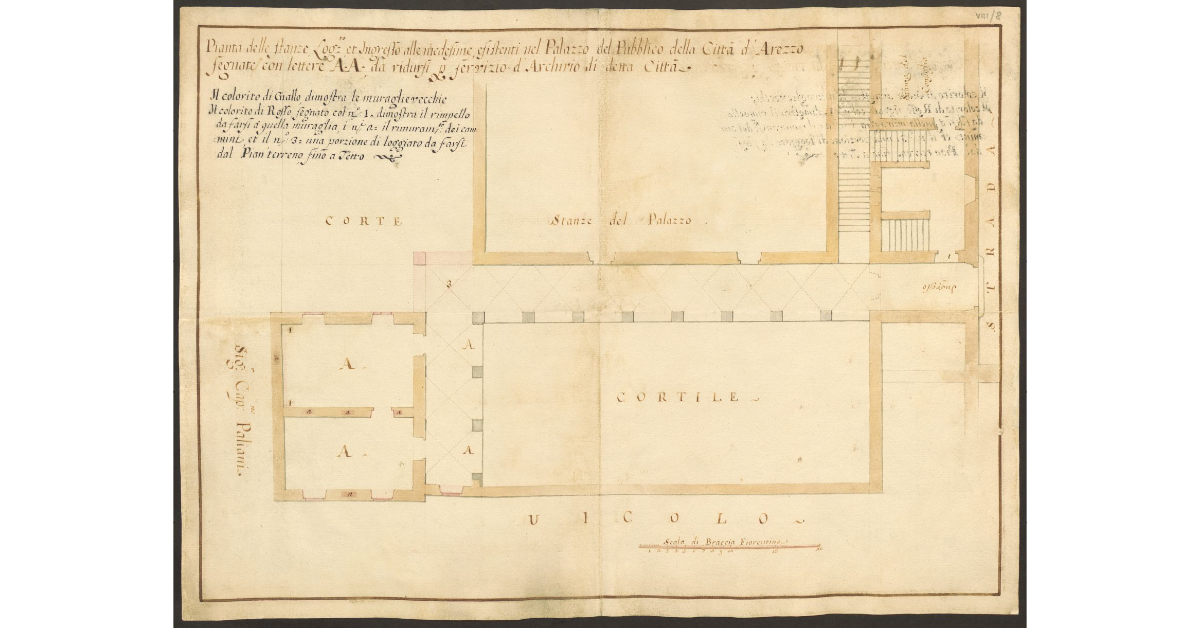 VIII/8
Pianta delle stanze Logg.e et Ingresso alle medesime esistenti nel Palazzo del Pubblico della Città d'Arezzo
segnate con lettere A.A. da ridursi p servizio d'Archivio di detta Città
Il colorito di Giallo dimostra le muraglie vecchie
Il colorito di Rosso segnato col n.o 1. dimostra il rimpello
da farsi a quella muraglia, i n.i 2= il rimuram.to dei cam
mini, et il n.o 3= una porzione di loggiato da farsi
dal Pian terreno fino a Tetto
CORTE
Stanze del Palazzo
STRADA
3
Ingresso
1
A
A
1
Sig.r Cav.re Paliani
A
A
CORTILE
VICOLO
Scala di Braccia Fiorentine